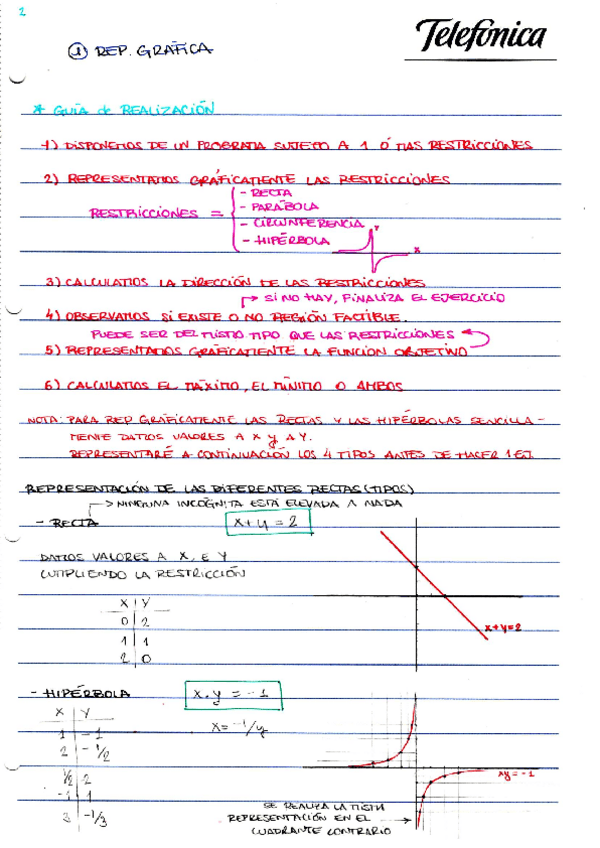 2
Telefónica
① REP. GRÁFICA
* GUÍA de REALIZACIÓN
1) DISPONEMOS DE UN PROGRAMA SUJETO A 1 Ó MAS RESTRICCIONES
2) REPRESENTAMOS GRÁFICAMENTE LAS RESTRICCIONES
RESTRICCIONES =
- RECTA
- PARÁBOLA
- CIRCUNFERENCIA
- HIPÉRBOLA
Y
X
3) CALCULAMOS LA DIRECCIÓN DE LAS RESTRICCIONES
SI NO HAY, FINALIZA EL EJERCICIO
4) OBSERVAMOS SI EXISTE O NO REGIÓN FACTIBLE.
PUEDE SER DEL MISMO TIPO QUE LAS RESTRICCIONES
5) REPRESENTAMOS GRÁFICAMENTE LA FUNCION OBJETIVO
6) CALCULAMOS EL MÁXIMO, EL MÍNIMO O AMBOS
NOTA: PARA REP. GRÁFICAMENTE LAS RECTAS Y LAS HIPÉRBOLAS SENCILLA-
MENTE DAMOS VALORES A X y A Y.
REPRESENTARÉ A CONTINUACIÓN LOS 4 TIPOS ANTES DE HACER 1 EJ.
REPRESENTACIÓN DE LAS DIFERENTES RECTAS (TIPOS)
NINGUNA INCOGNITA ESTÁ ELEVADA A NADA
- RECTA
x+y = 2
DAMOS VALORES A X, E Y
CUMPLIENDO LA RESTRICCIÓN
X | Y
0 | 2
1 | 1
2 | 0
x+y=2
- HIPÉRBOLA
x.y = -1
X | Y
x= -1/y
1 | -1
2 | -1/2
1/2 | -2
-1 | 1
3 | -1/3
xy = -1
SE REALIZA LA MISMA
REPRESENTACIÓN EN EL
CUADRANTE CONTRARIO